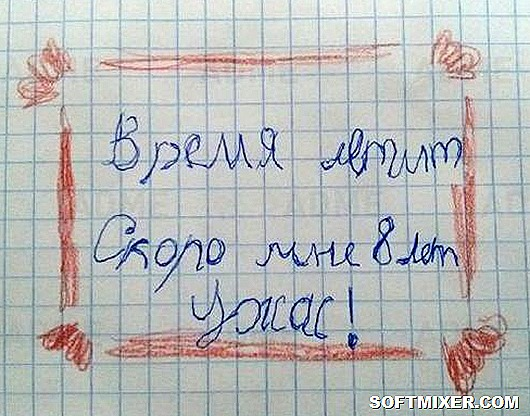 Время летит
Скоро мне 8 лет
Ужас!
SOFTMIXER.COM